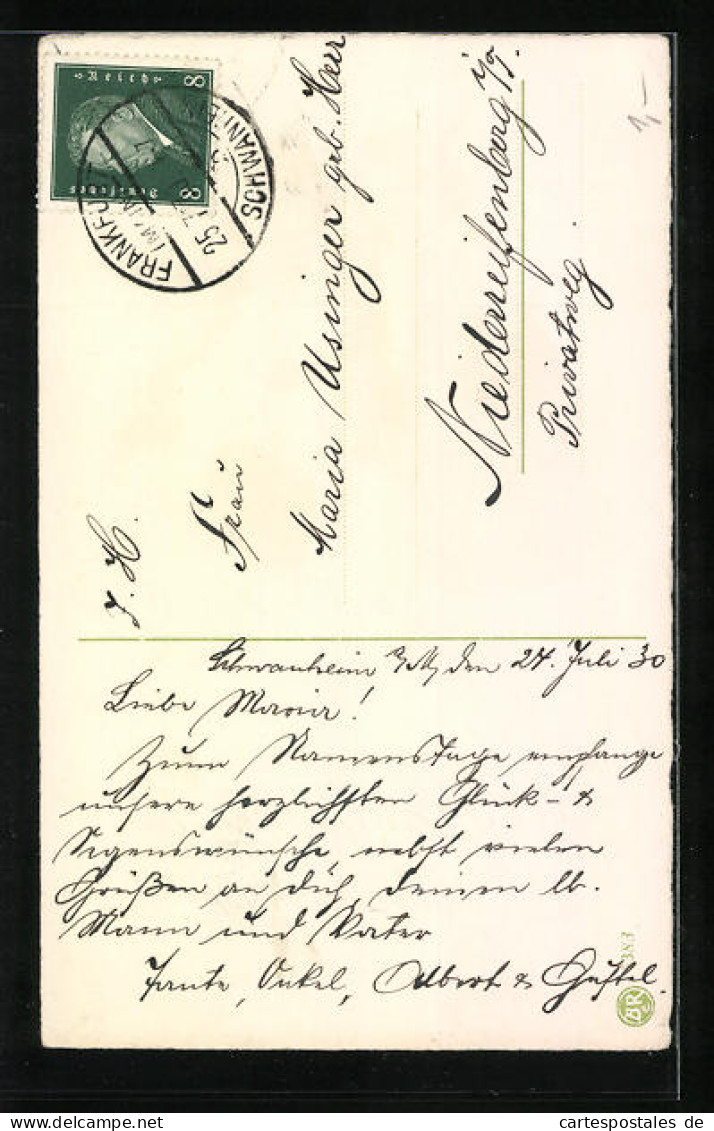 8 8
Deutsches Reich
FRANKFURT
SCHWANHEIM
25.7.
1,-
J. H.
Frau
Maria Usinger geb. Herr
Niederreifenberg i/T.
Privatweg
Schwanheim a/M, den 24. Juli 30
Liebe Maria!
Zum Namenstage empfange
unsere herzlichsten Glück- &
Segenswünsche, nebst vielen
Grüßen an Dich, deinen lb.
Mann und Vater
Tante, Onkel, Albert & Gustel.
383
cartespostales de